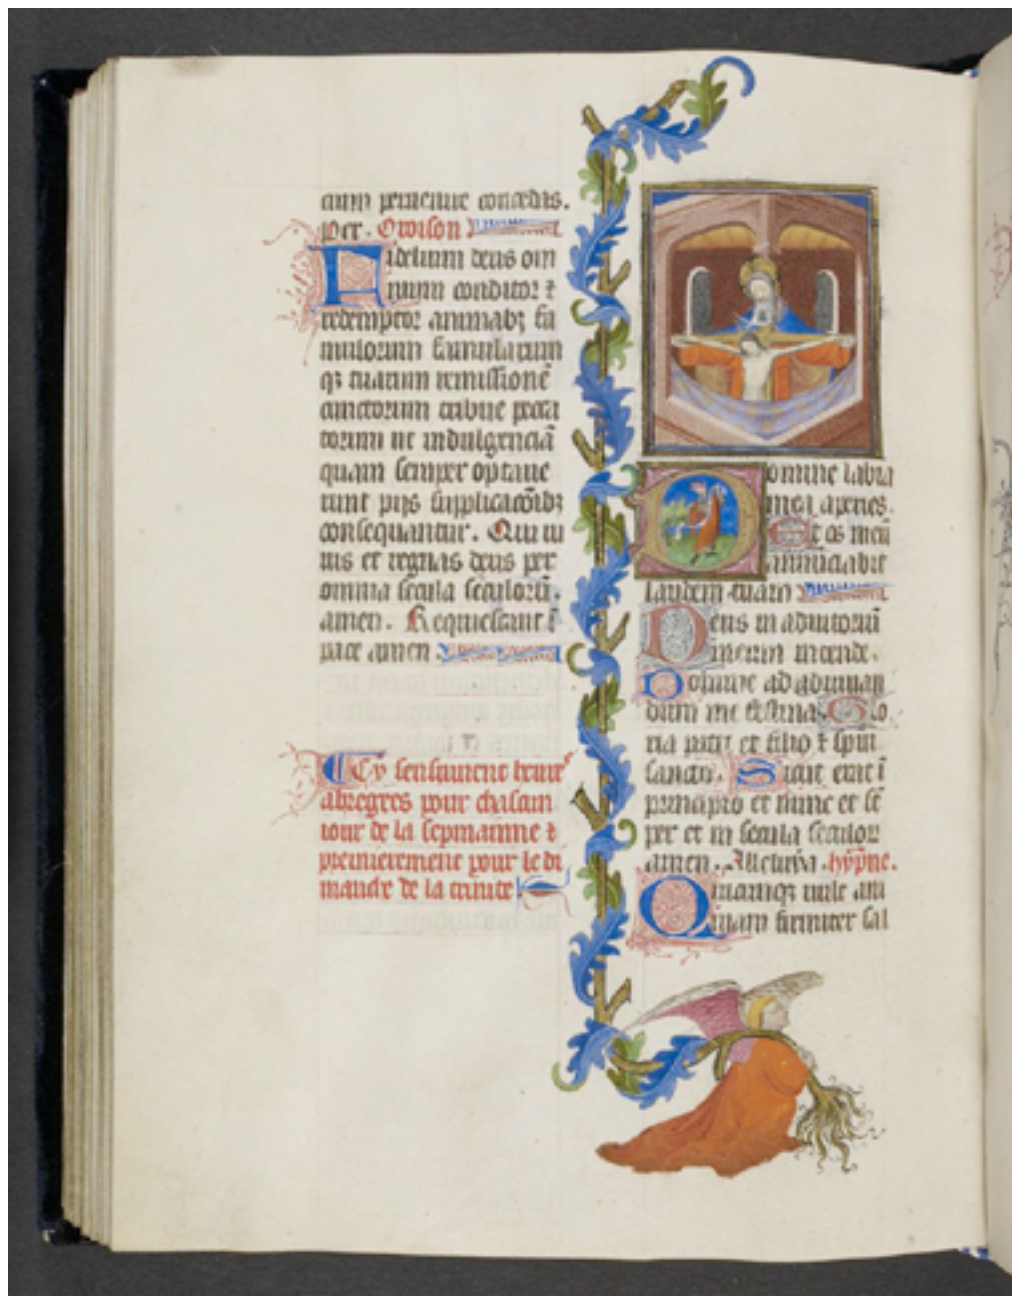 cium peruenire concedas.
Per. Oroison
Fidelium deus om
nium conditor ⁊
redemptor animabꝫ fa
mulorum famularum
qꝫ tuarum remissionē
cunctorum tribue pecca
torum ut indulgenciā
quam semper optaue
runt pijs supplicacōibꝫ
consequantur. Qui ui
uis et regnas deus per
omnia secula seculorū.
amen. Requiescant ī
pace amen
Cy sensuiuent heures
abregees pour chascun
iour de la sepmainne ⁊
premierement pour le di
manche de la trinite
Domine labia
mea aperies.
Et os meū
annunciabit
laudem tuam
Deus in adiutoriū
meum intende.
Domine ad adiuuan
dum me festina. Glo
ria patri et filio ⁊ spiri
sancto. Sicut erat ī
principio et nunc et sē
per et in secula seculor
amen. Alleluya. hȳpne.
Quicumqꝫ vult ani
mam firmiter sal